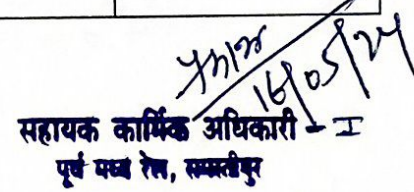 16/05/24
सहायक कार्मिक अधिकारी - I
पूर्व मध्य रेल, समस्तीपुर